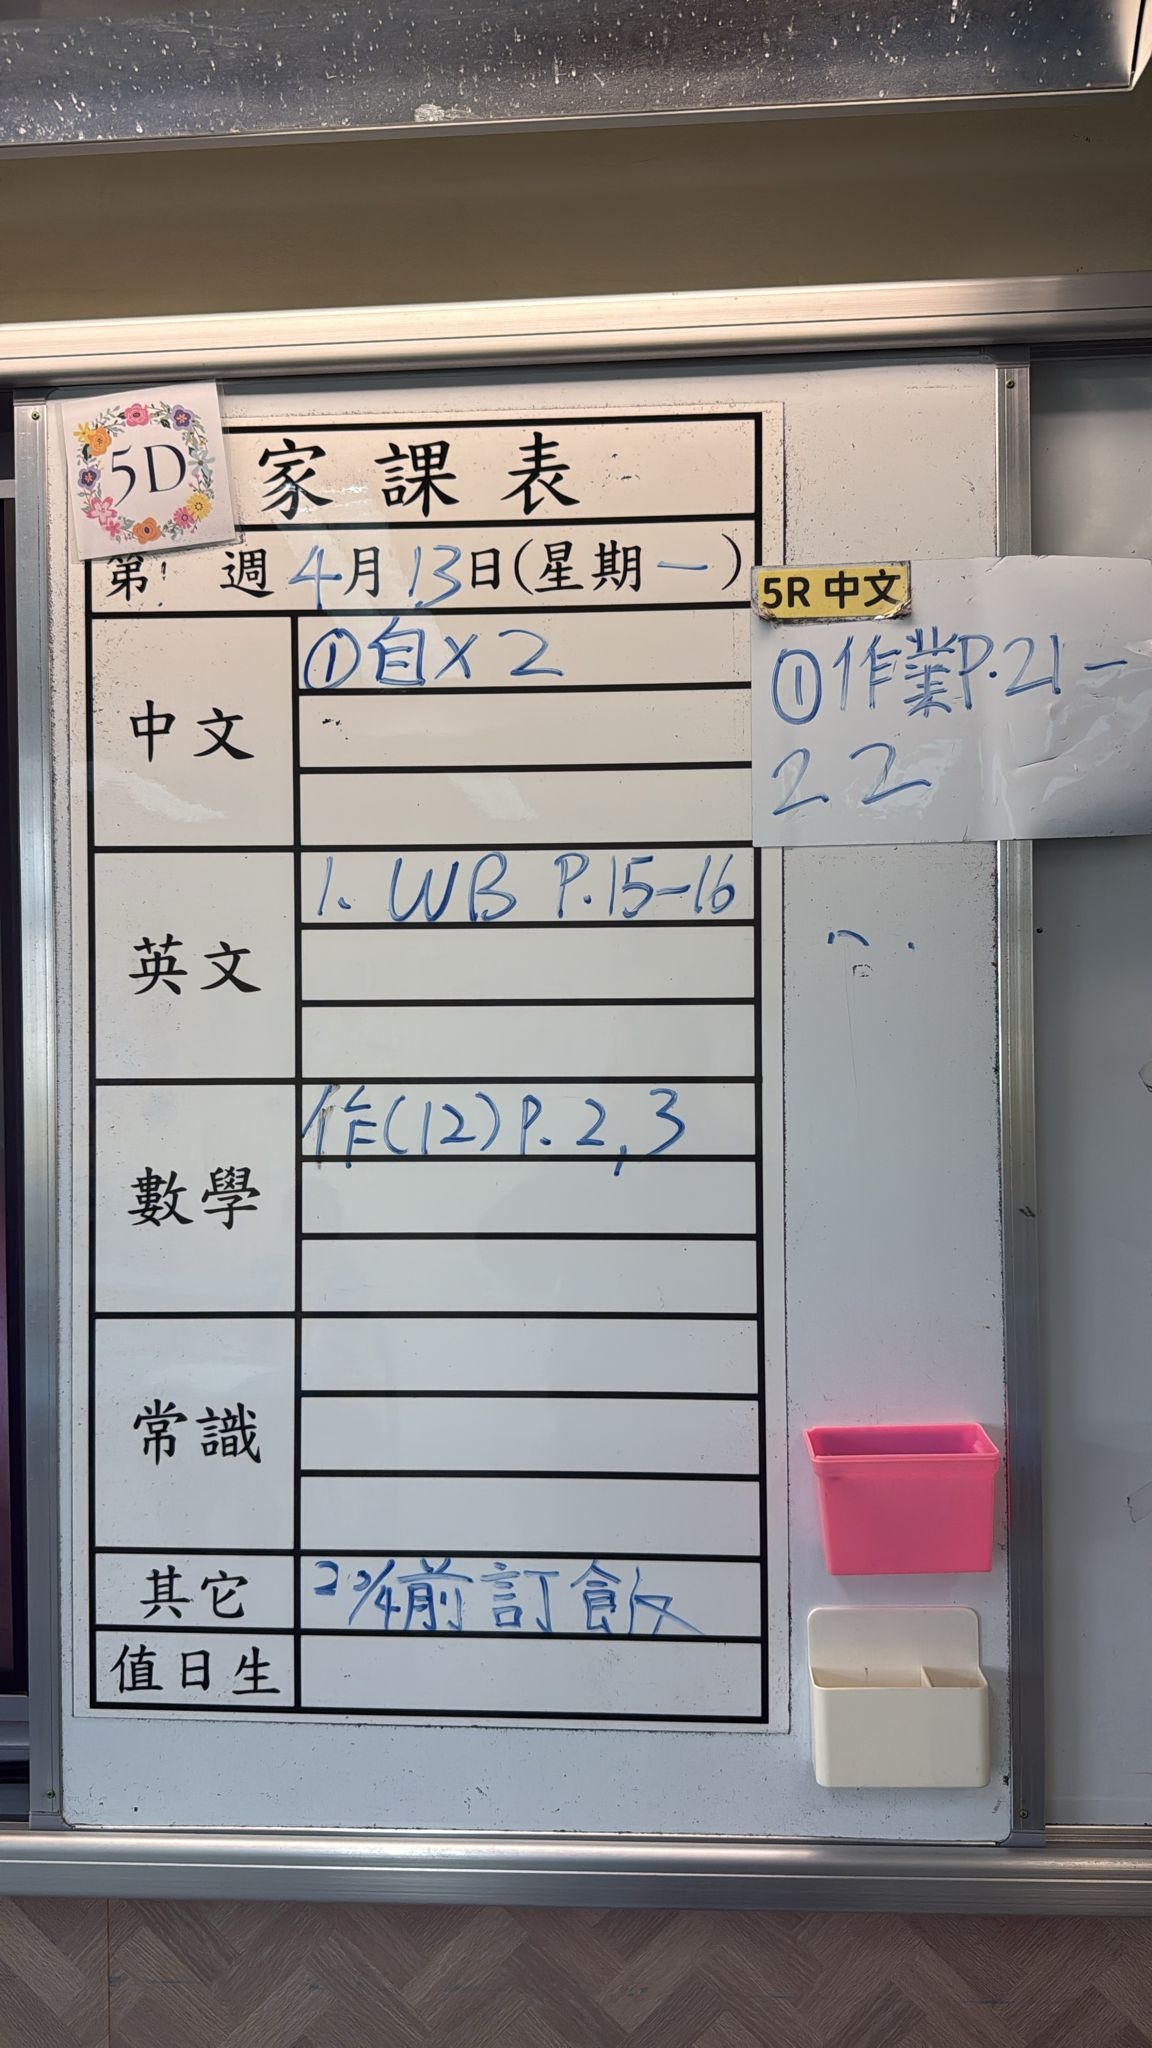 5D
家課表
第 週 4月13日(星期一)
中文
①自x2
英文
1. WB P.15-16
數學
作(12)P.2,3
常識
其它
20/4前訂飯
值日生
5R 中文
①作業P.21-
22